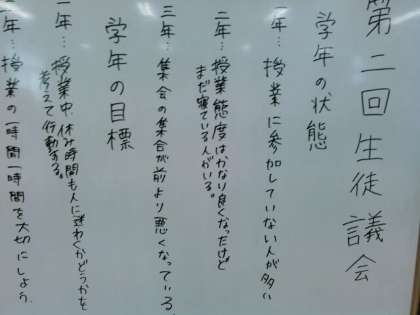 第二回生徒議会
学年の状態
一年…授業に参加していない人が多い
二年…授業態度はかなり良くなったけど
まだ寝ている人がいる。
三年…集会の集合が前より悪くなっている。
学年の目標
一年…授業中、休み時間も人に迷わくかどうかを
考えて行動する。
二年…授業の一時間一時間を大切にしよう。